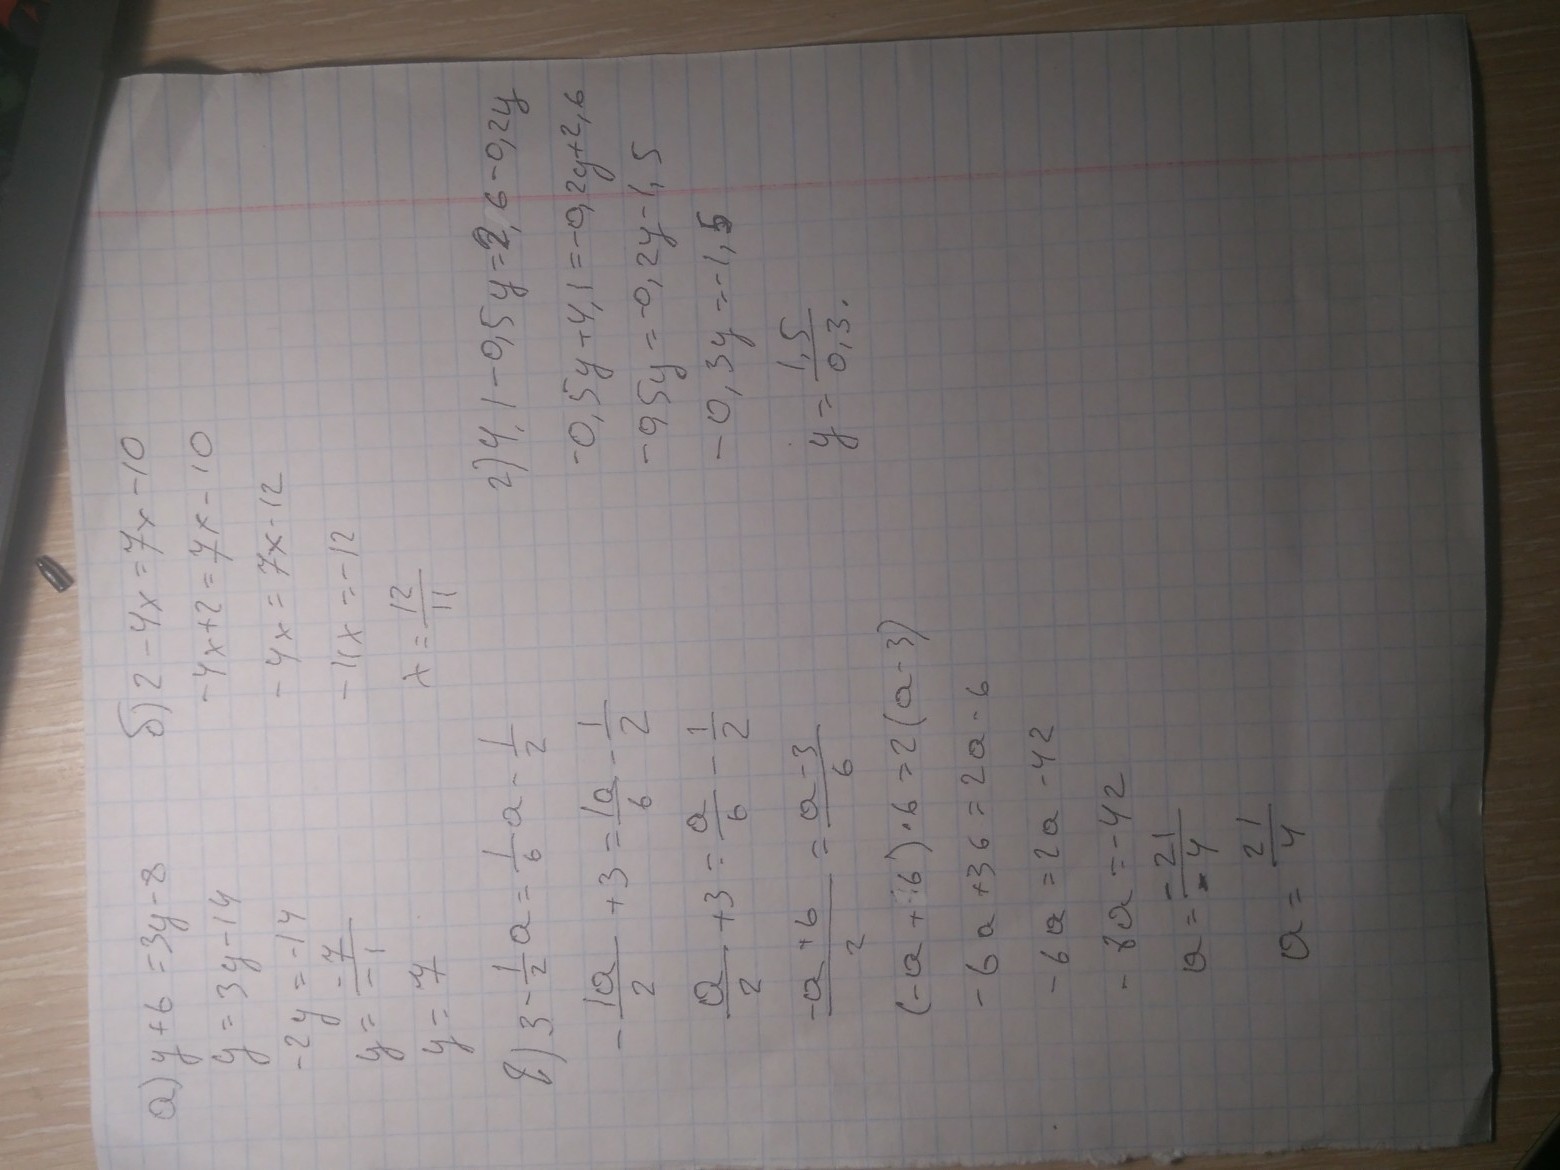 а) y + 6 = 3y - 8
y = 3y - 14
-2y = -14
y = -7/-1
y = 7
б) 2 - 4x = 7x - 10
-4x + 2 = 7x - 10
-4x = 7x - 12
-11x = -12
x = 12/11
в) 3 - 1/2 a = 1/6 a - 1/2
- 1a/2 + 3 = 1a/6 - 1/2
a/2 + 3 = a/6 - 1/2
-a + 6/2 = a - 3/6
(-a + 6) · 6 = 2(a - 3)
-6a + 36 = 2a - 6
-6a = 2a - 42
-8a = -42
a = -21/-4
a = 21/4
г) 4,1 - 0,5y = 2,6 - 0,2y
-0,5y + 4,1 = -0,2y + 2,6
-0,5y = -0,2y - 1,5
-0,3y = -1,5
y = 1,5/0,3.